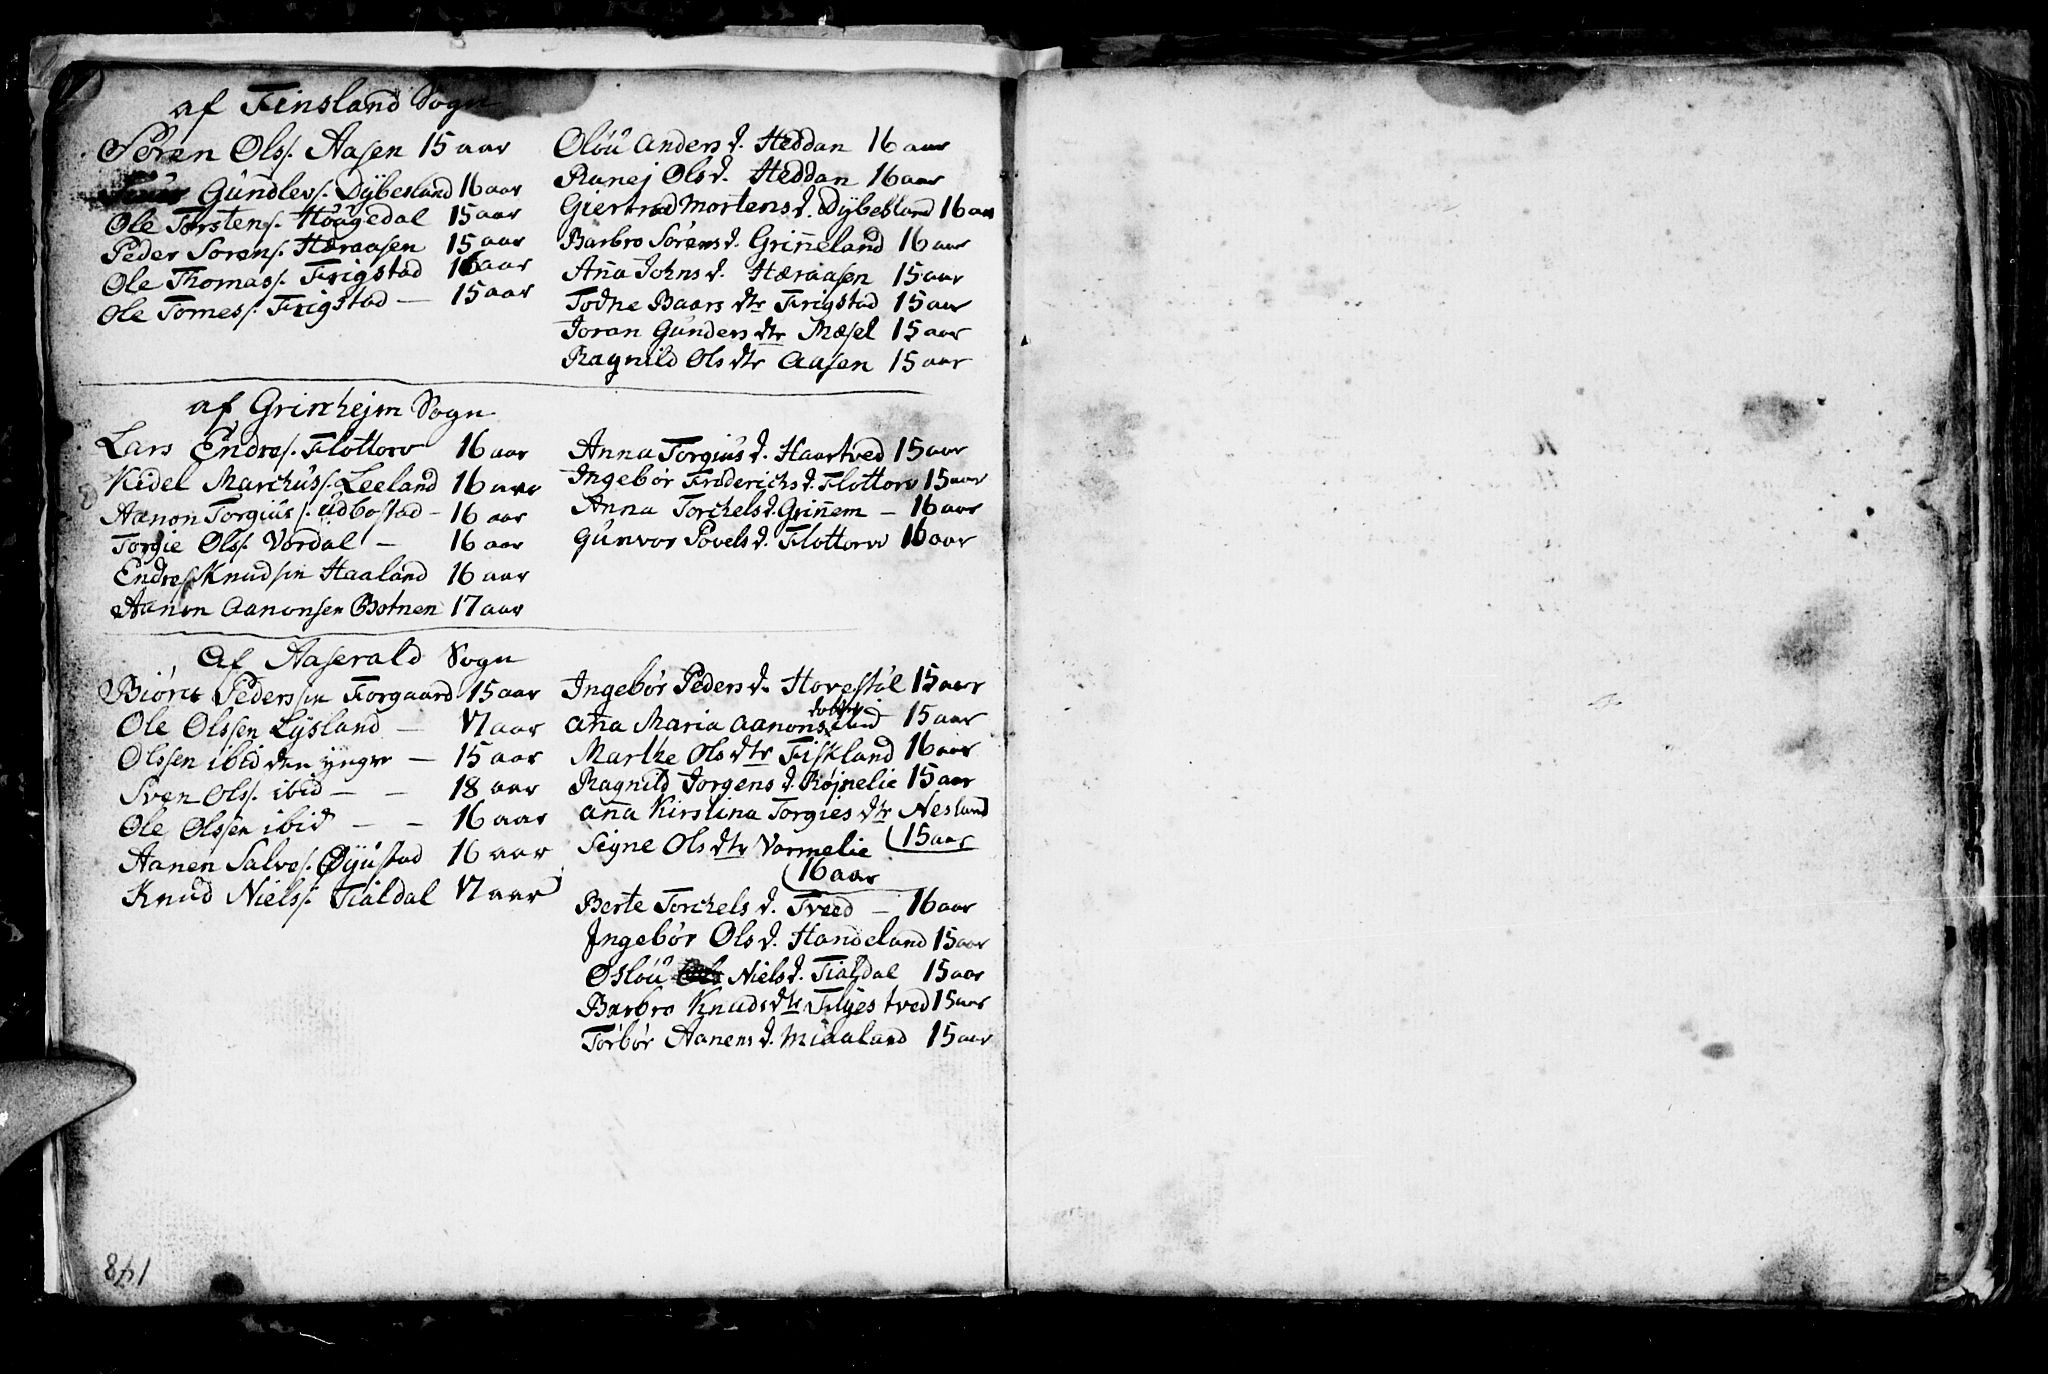 af Finsland Sogn
Søren Ols. Aasen 15 aar
Gundlevs. Dÿbesland 16 aar
Ole Torstens. Höÿgedal 15 aar
Peder Sørens. Hæraasen 15 aar
Ole Thomas s. Frigstad 16 aar
Ole Tomes s. Frigstad — 15 aar
Oløú Anders d. Heddan 16 aar
Ranej Ols d. Heddan 16 aar
Giertrud Mortens d. Dÿbesland 16 aar
Barbro Sørens d. Griñeland 16 aar
Aña Johns d. Hæraasen 15 aar
Todne Baars dtr Frigstad 15 aar
Joran Gúnders dtr Mæsel 15 aar
Ragnild Ols dtr Aasen 15 aar
af Grinhejm Sogn
Lars Endres. Flottorv 16 aar
Kidel Marchús s. Leeland 16 aar
Aanon Torgiús s. údbostad – 16 aar
Torgie Ols s. Vordal – 16 aar
Endre Knudsen Haaland 16 aar
Aanon Aanonsen Botnen 17 aar
Anna Torgiús d. Haartved 15 aar
Ingebør Friderichs d. Flottorv 15 aar
Anna Torchels d. Griñem – 16 aar
Gúnvor Povels d. Flottorv 16 aar
Af Aaserald Sogn
Biørn Pederssen Forgaard 15 aar
Ole Olssen Lÿsland — 17 aar
Olssen ibid den ÿngre — 15 aar
Sven Ols s. ibid – – 18 aar
Ole Olssen ibid – – 16 aar
Aanen Salves. Øÿústad 16 aar
Knúd Niels s. Fialdal 17 aar
Ingebør Peders d. Hovestøl 15 aar
Aña Maria Aanons ibid 15 aar
Marthe Ols dtr Fiskland 16 aar
Ragnild Jørgens d. Røjnelie 15 aar
Aña Kirstina Torgies dtr Nesland
15 aar
Signe Ols dtr Vormelie
16 aar
Berte Torchels d. Tveed – 16 aar
Ingebør Ols d. Handeland 15 aar
Osløú Niels d. Fialdal 15 aar
Barbro Knuds dtr Fliÿestved 15 aar
Tørbør Aanens d. Miaaland 15 aar
148